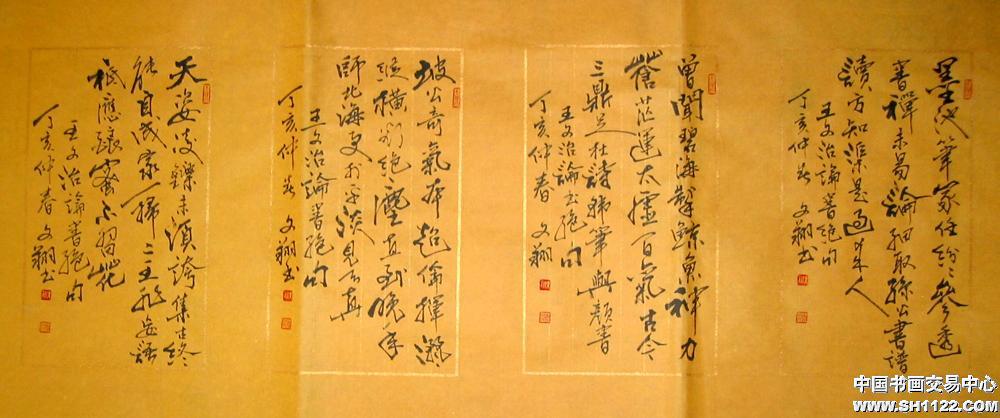 墨池筆冢任紛々參透
書禪未易論細取孫公書譜
讀方知渠是過來人
王文治論書絕句
丁亥仲春 文翔書
曾聞碧海掣鯨魚神力
蒼茫運太虛間氣古今
三鼎足杜詩韓筆與顏書
王文治論書絕句
丁亥仲春 文翔
坡公奇氣本超倫揮灑
縱橫欲絕塵直到晚年
師北海更於平淡見天真
王文治論書絕句
丁亥仲春 文翔書
天姿凌轢未須誇集古終
能自成家一掃二王非妄語
祗應釀蜜不留花
王文治論書絕句
丁亥仲春 文翔書
中国书画交易中心
www.SH1122.com